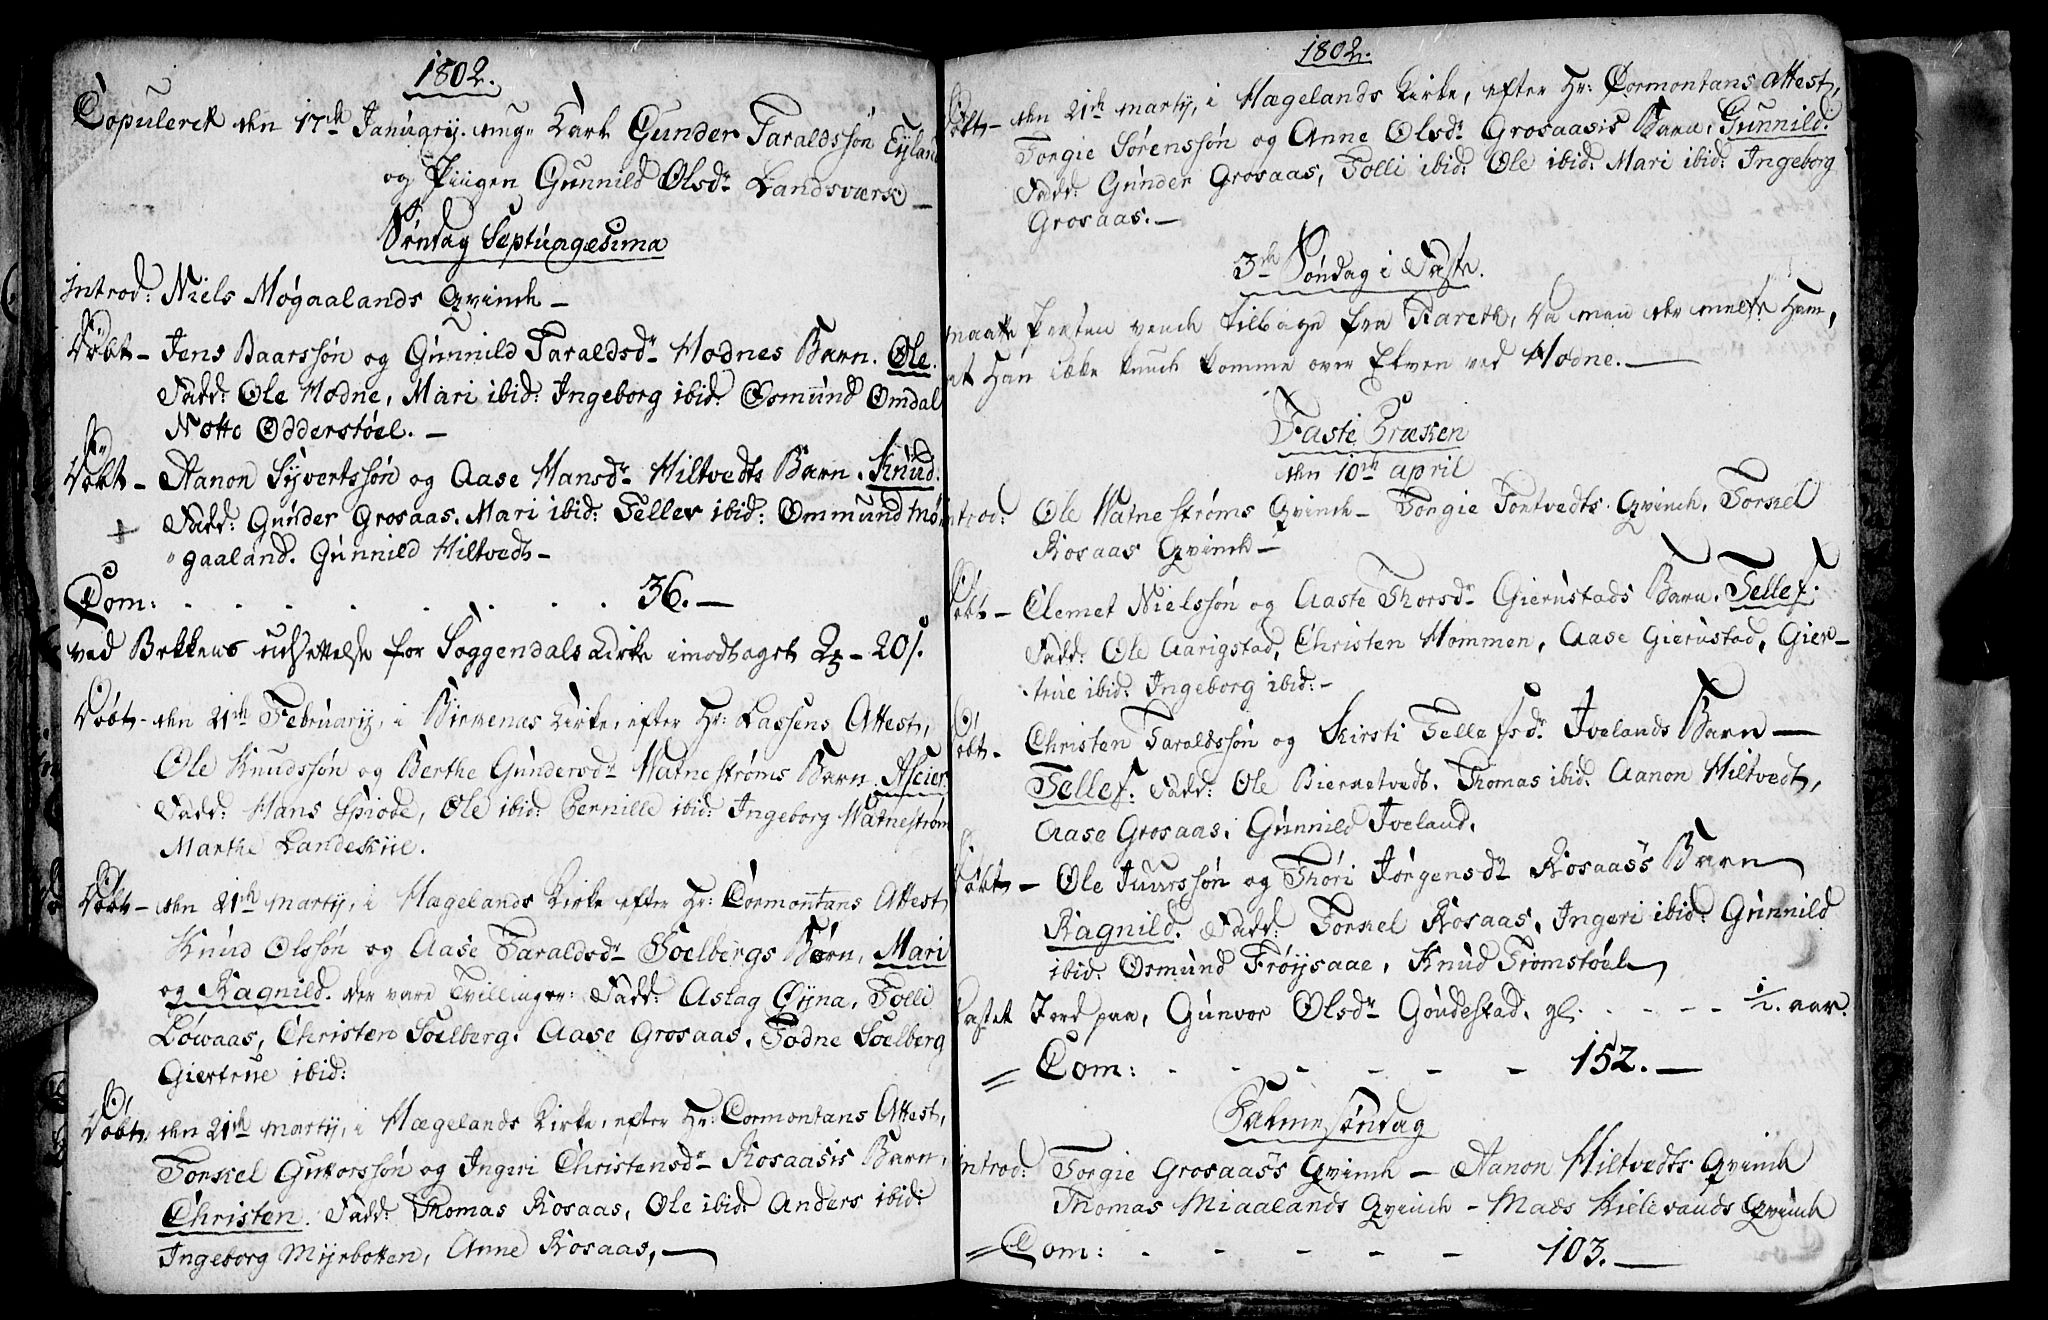 1802.
Copuleret den 17de Januarij. unge Karl Gunder Taraldssøn Eyland
og Piigen Gunnild Olsdr Landsværk –
Søndag Septuagesima
Introd: Niels Møgaalands Qvinde –
Døbt – Jens Baarssøn og Gunnild Taraldsdr Hodnes Barn. Ole.
Fadd: Ole Hodne, Mari ibid: Ingeborg ibid: Osmund Omdal
Notto Odderstøel. –
Døbt – Aanon Syvertssøn og Aase Hansdr Hiltvedts Barn. Knud.
+ Fadd: Gunder Grosaas. Mari ibid: Tellev ibid: Ommund Mø
„gaaland. Gunnild Hiltvedt –
Com: . . . . . . . 36. –
ved Bekkens udsettelse for Soggendals Kirke imodtaget 2 – 20 s.
Døbt – den 21de Februarij, i Birkenæs Kirke, efter Hr: Lassens Attest,
Ole Knudssøn og Berthe Gundersdr Watnestrøms Barn Asier
Fadd: Hans Spiode, Ole ibid: Pernille ibid: Ingeborg Watnestrøm
Marthe Landeskiie.
Døbt – den 21de Martij, i Hægelands Kirke efter Hr: Cormontans Attest
Knud Olssøn og Aase Taraldsdr Soelbergs Børn, Mari
og Ragnild. der vare Tvillinger: Fadd: Aslag Øyna, Tolli
Løwaas, Christen Soelberg. Aase Grosaas. Todne Soelberg
Giertrue ibid:
Døbt. den 21de Martij, i Hægelands Kirke, efter Hr: Cormontans Attest,
Torkel Guttorssøn og Ingeri Christensdr Rosaasis Barn,
Christen. Fadd: Thomas Rosaas, Ole ibid: Anders ibid:
Ingeborg Myrbotten, Anne Rosaas, –
1802.
Døbt – den 21de Martij, i Hægelands Kirke, efter Hr: Cormontans Attest,
Torgie Sørenssøn og Anne Olsdr Grosaasis Barn, Gunnild.
Fadd: Gunder Grosaas, Tolli ibid: Ole ibid: Mari ibid: Ingeborg
Grosaas. –
3de Søndag i Faste.
maatte Præsten vende tilbage fra Kareth, da man der meldte Ham,
at Han ikke kunde komme over Elven ved Hodne. –
Faste Præken
den 10de April
Introd: Ole Watnestrøms Qvinde – Torgie Tontvedts Qvinde, Torkel
Rosaas Qvinde –
Døbt – Clemet Nielssøn og Aaste Thorsdr Gierustads Barn. Tellef.
Fadd: Ole Aarigstad, Christen Hommen, Aase Gierustad, Gier–
true ibid: Ingeborg ibid: –
Døbt – Christen Taraldssøn og Kirsti Tellefsdr Ivelands Barn –
Tellef. Fadd: Ole Birketvedt. Thomas ibid. Aanon Hiltvedt,
Aase Grosaas. Gunnild Iveland.
Døbt – Ole Juurssøn og Thøri Jørgensdr Rosaas's Barn
Ragnild. Fadd: Torkel Rosaas, Ingeri ibid: Gunnild
ibid: Osmund Frøysaae, Knud Tromstøel
Kastet Jord paa, Gunvor Olsdr Goudestad. gl. - - - - 1/2. aar.
= Com: - - - - - - 152. –
Palmesøndag
Introd: Torgie Grosaas's Qvinde – Aanon Hiltvedts Qvinde
Thomas Miaalands Qvinde – Mads Kielevands Qvinde
= Com: - - - - - 103. –